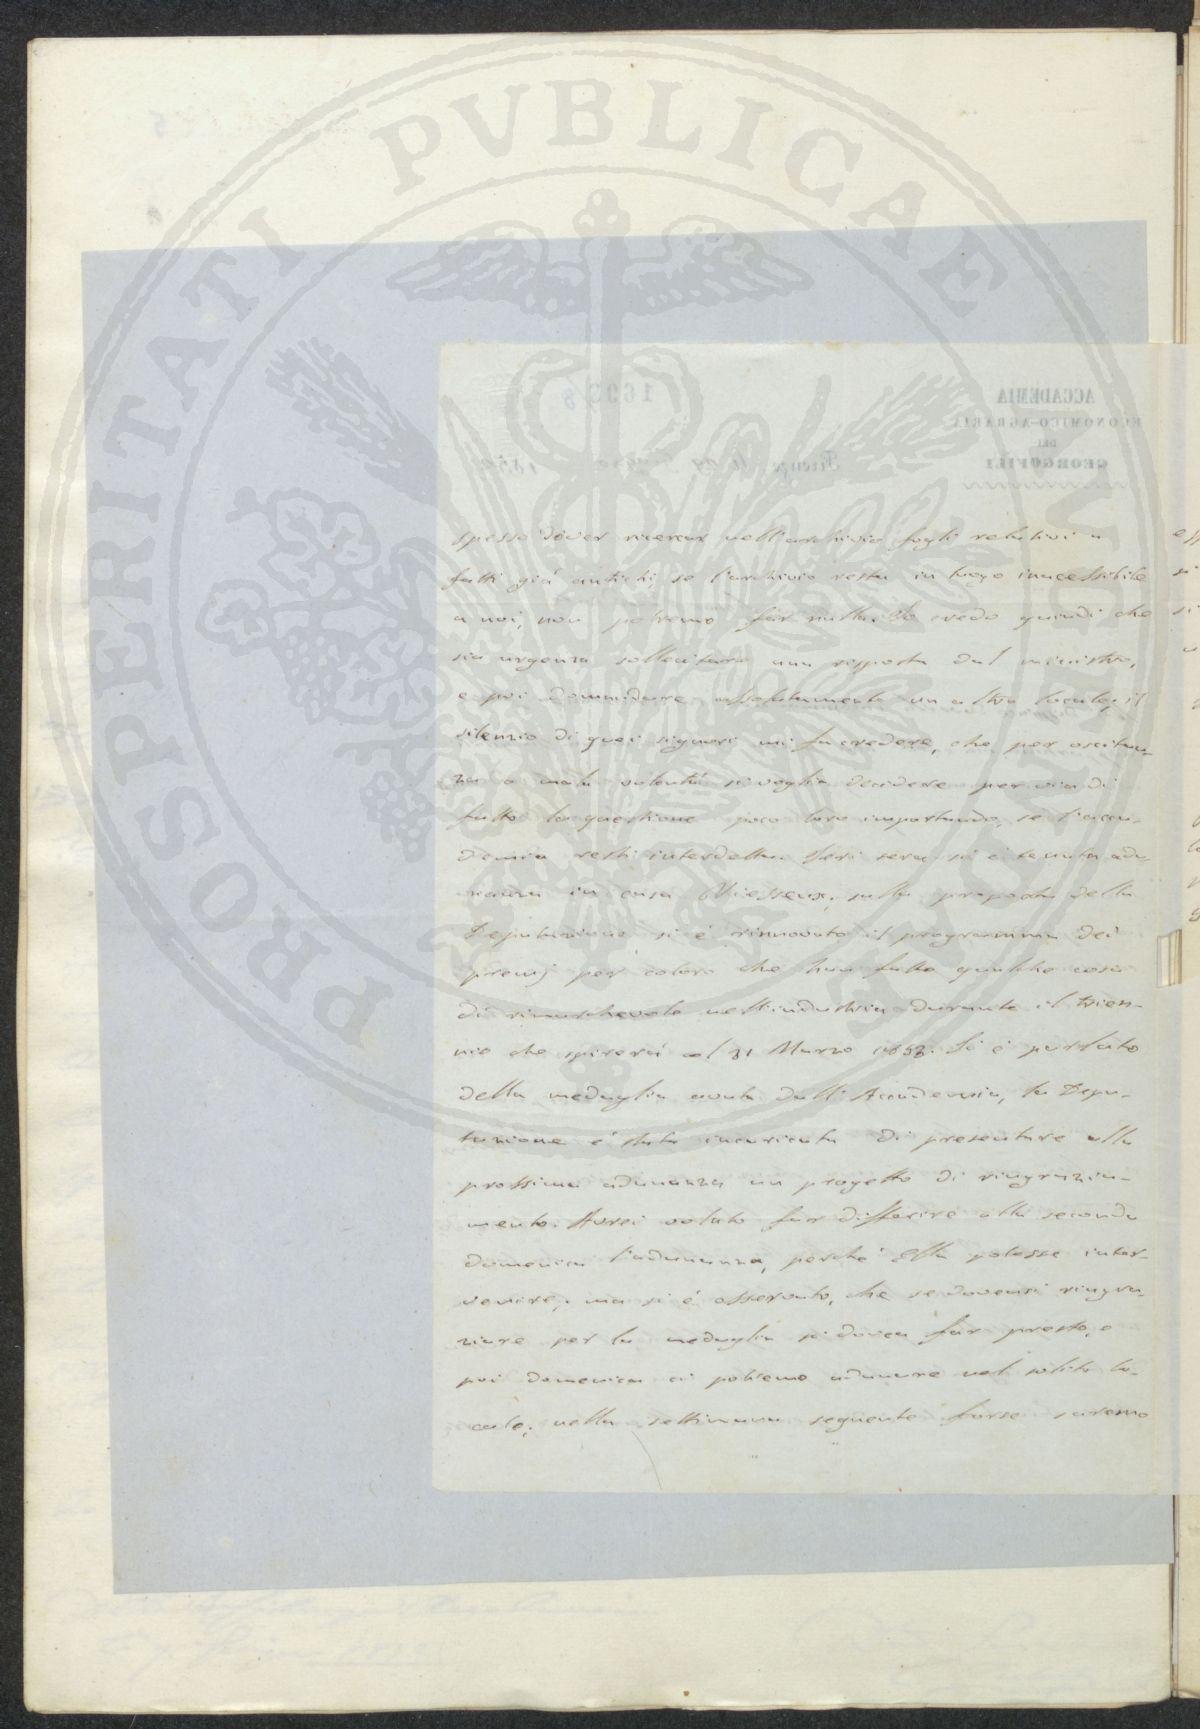 PROSPERITATI PUBLICAE AUGENDAE
spesso dover ricercar nell'archivio fogli relativi a
fatti già antichi, se l'archivio resta in luogo inacessibile
a noi, non potremo far nulla. Io credo quindi che
sia urgenza sollecitare una risposta dal ministro,
e poi domandare assolutamente un altro locale; il
silenzio di quei signori mi fa credere, che per oscitan-
za o mala volontà si voglia decidere per via di
fatto la questione poco loro importando, se l'acca-
demia resti interdetta. Ieri sera si è tenuta adu-
nanza in casa Vieusseux; sulla proposta della
Deputazione si è rinnovato il programma dei
premj per coloro che han fatto qualche cosa
di rimarchevole nell'industria durante il trien-
nio che spirerà al 31 Marzo 1853. Si è parlato
della medaglia avuta dall'Accademia, la Depu-
tazione è stata incaricata di presentare alla
prossima adunanza un progetto di ringrazia-
mento. Avrei voluto far differire alla seconda
domenica l'adunanza, perché Ella potesse inter-
venire; ma si è osservato, che se doveasi ringra-
ziare per la medaglia si dovea far presto, e
poi domenica ci potremo adunare nel solito lo-
cale; nella settimana seguente forse saremo